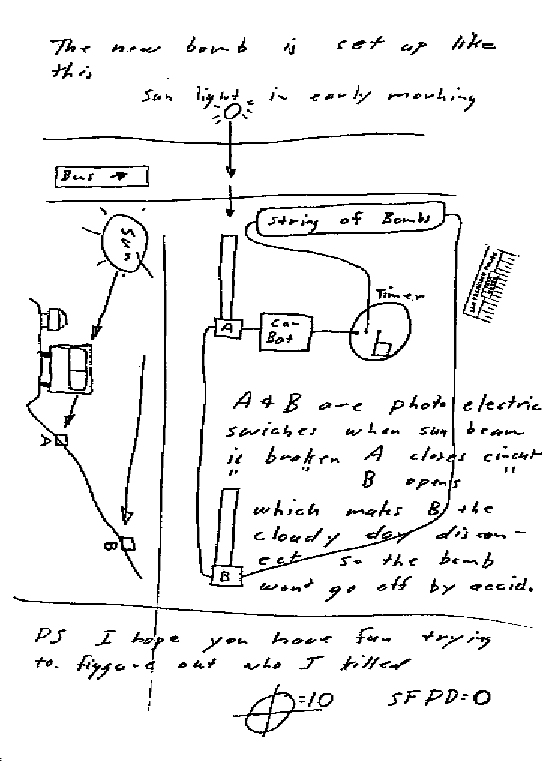 The new bomb is set up like
this
Sun light in early morning
Bus
Sun
String of Bombs
Timer
A
Car
Bat
A
B
A & B are photo electric
swiches when sun beam
is broken A closes circut
" " B opens "
which makes B the
cloudy day discon-
ect so the bomb
wont go off by accid.
B
PS I hope you have fun trying
to figgure out who I killed
=10 SFPD=0